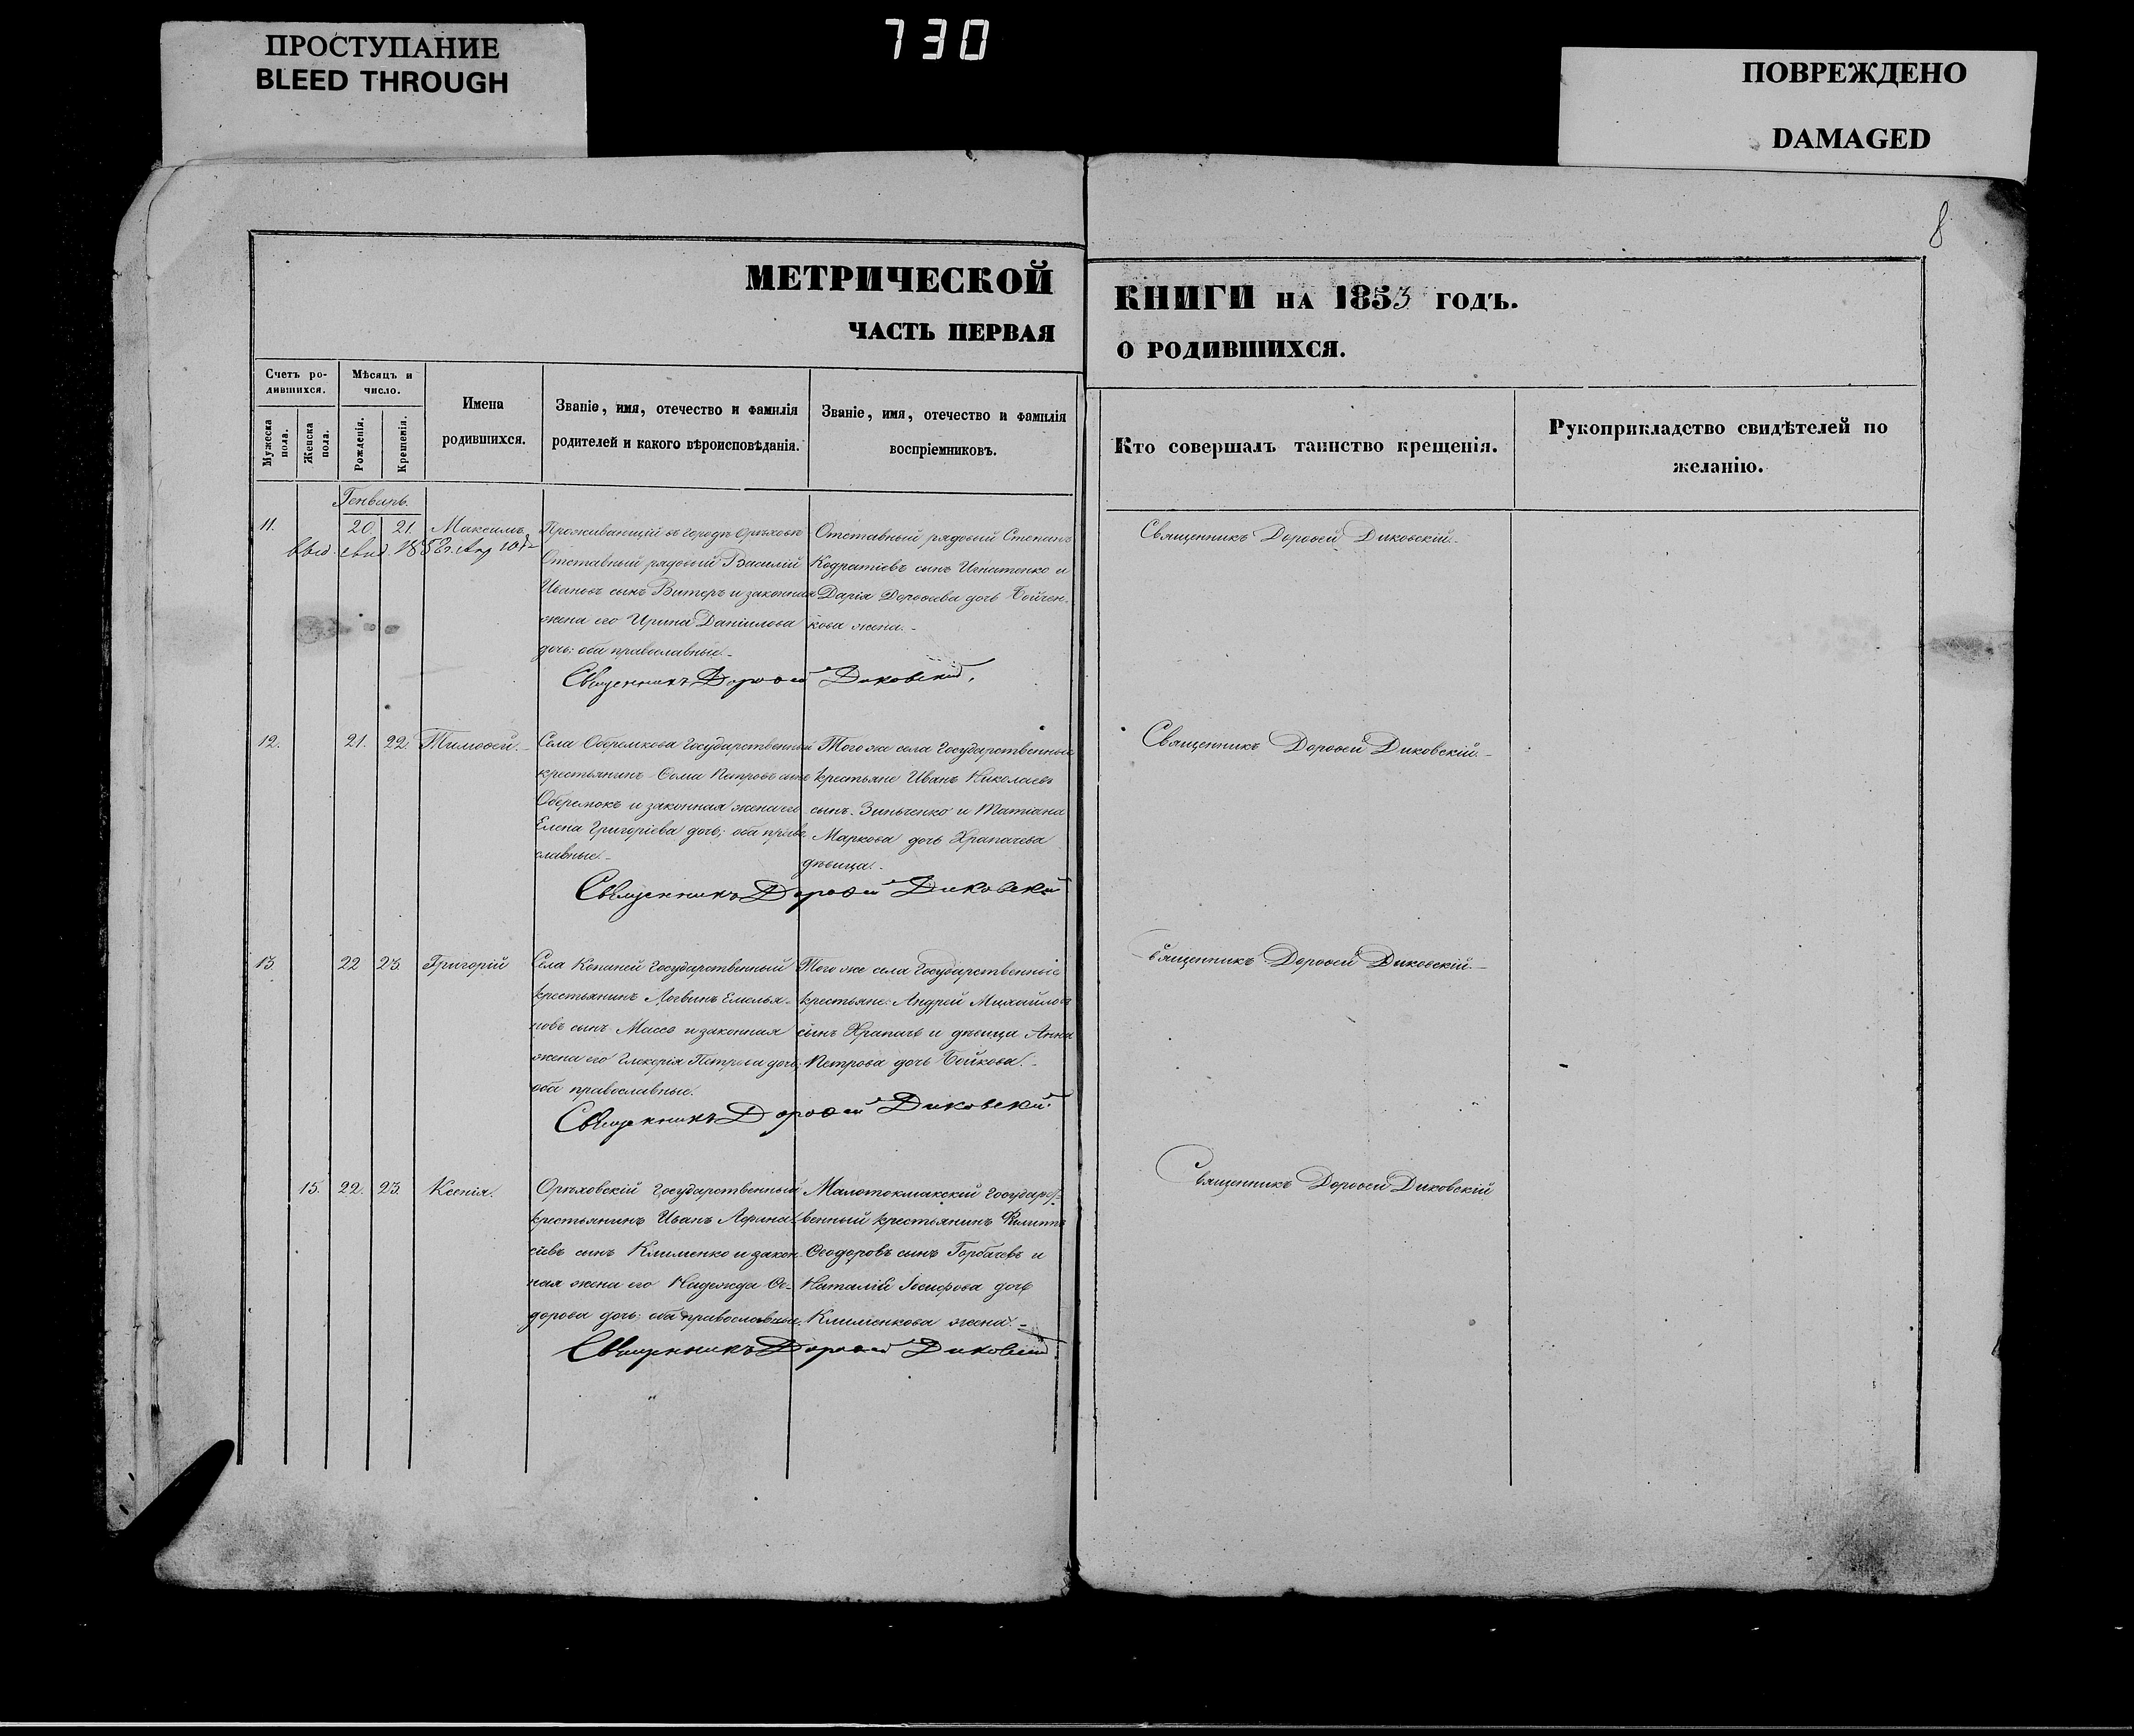 ПРОСТУПАНИЕ
BLEED THROUGH
730
ПОВРЕЖДЕНО
DAMAGED
8
МЕТРИЧЕСКОЙ
ЧАСТЬ ПЕРВАЯ
КНИГИ НА 1853 ГОДЪ.
О РОДИВШИХСЯ.
Счетъ ро-
дившихся.
Мужеска
пола.
Женска
пола.
Мѣсяцъ и
число.
Рожденія.
Крещенія.
Имена
родившихся.
Званіе, имя, отечество и фамилія
родителей и какого вѣроисповѣданія.
Званіе, имя, отечество и фамилія
воспріемниковъ.
Кто совершалъ таинство крещенія.
Рукоприкладство свидѣтелей по
желанію.
Генварь.
11.
20.
21.
Максимъ
Выд. свид.
Проживающій въ городѣ Орѣховѣ
Отставный рядовый Василій
Ивановъ сынъ Витеръ и законная
жена его Ирина Даніилова
дочь: оба православные.
Отставный рядовый Степанъ
Кодратіевъ сынъ Игнатенко и
Дарія Дороѳеева дочь Бойчен-
кова жена.
Священникъ Дороѳей Диковскій.
Священникъ Дороѳей Диковскій.
12.
21.
22.
Тимоѳей.
Села Обремкова Государственный
крестьянинъ Ѳома Петровъ сынъ
Оберемокъ и законная жена его
Елена Григоріева дочь; оба право-
славные.
Того же села Государственный
крестьяне Иванъ Николаевъ
сынъ Зинченко и Татіана
Маркова дочь Храпачева
дѣвица.
Священникъ Дороѳей Диковскій
Священникъ Дороѳей Диковскій.
13.
22
23.
Григорій
Села Копаней Государственный
крестьянинъ Логвинъ Емелья-
новъ сынъ Массо и законная
жена его Гликерія Петрова дочь;
оба православные.
Того же села Государственные
крестьяне: Андрей Михайловъ
сынъ Храпачъ и дѣвица Анна
Петрова дочь Бойкова.
Священникъ Дороѳей Диковскій.
Священникъ Дороѳей Диковскій.
15.
22.
23.
Ксенія.
Орѣховскій Государственный
крестьянинъ Иванъ Аѳонас-
іевъ сынъ Клименко и закон-
ная жена его Надежда Ѳе-
дорова дочь: оба православные.
Малотокмакскій Государст-
венный крестьянинъ Филиппъ
Ѳеодоровъ сынъ Горбачевъ и
Наталія Іосифова дочь
Клименкова жена.
Священникъ Дороѳей Диковскій
Священникъ Дороѳей Диковскій